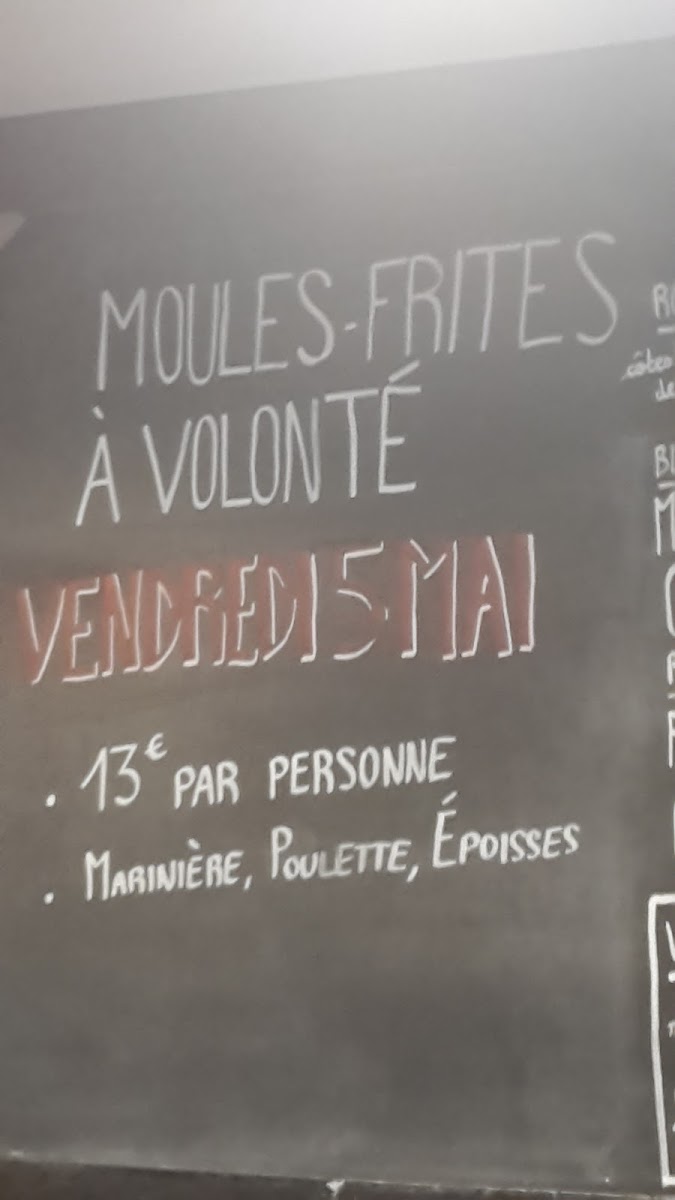 MOULES-FRITES
À VOLONTÉ
VENDREDI 5 MAI
. 13€ PAR PERSONNE
. MARINIÈRE, POULETTE, ÉPOISSES
côtes
de